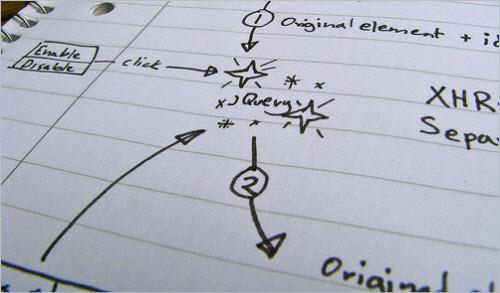 1 Original element +
Enable
Disable
click
JQuery
XHR
Sepa
2
Original